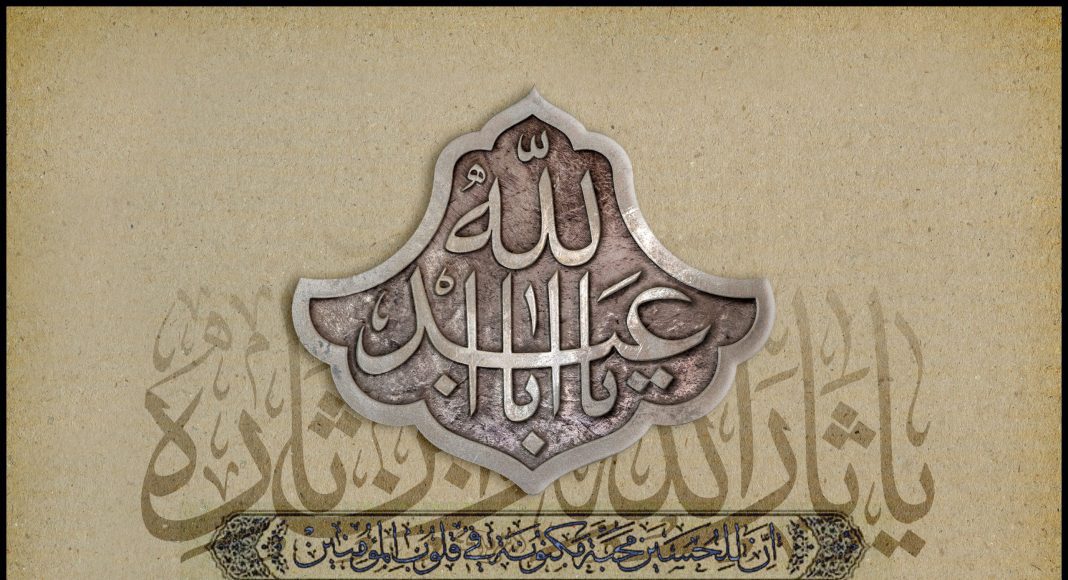 يا ابا عبد الله
يا ثار الله و ابن ثاره
ان للحسين محبة مكنونة في قلوب المؤمنين